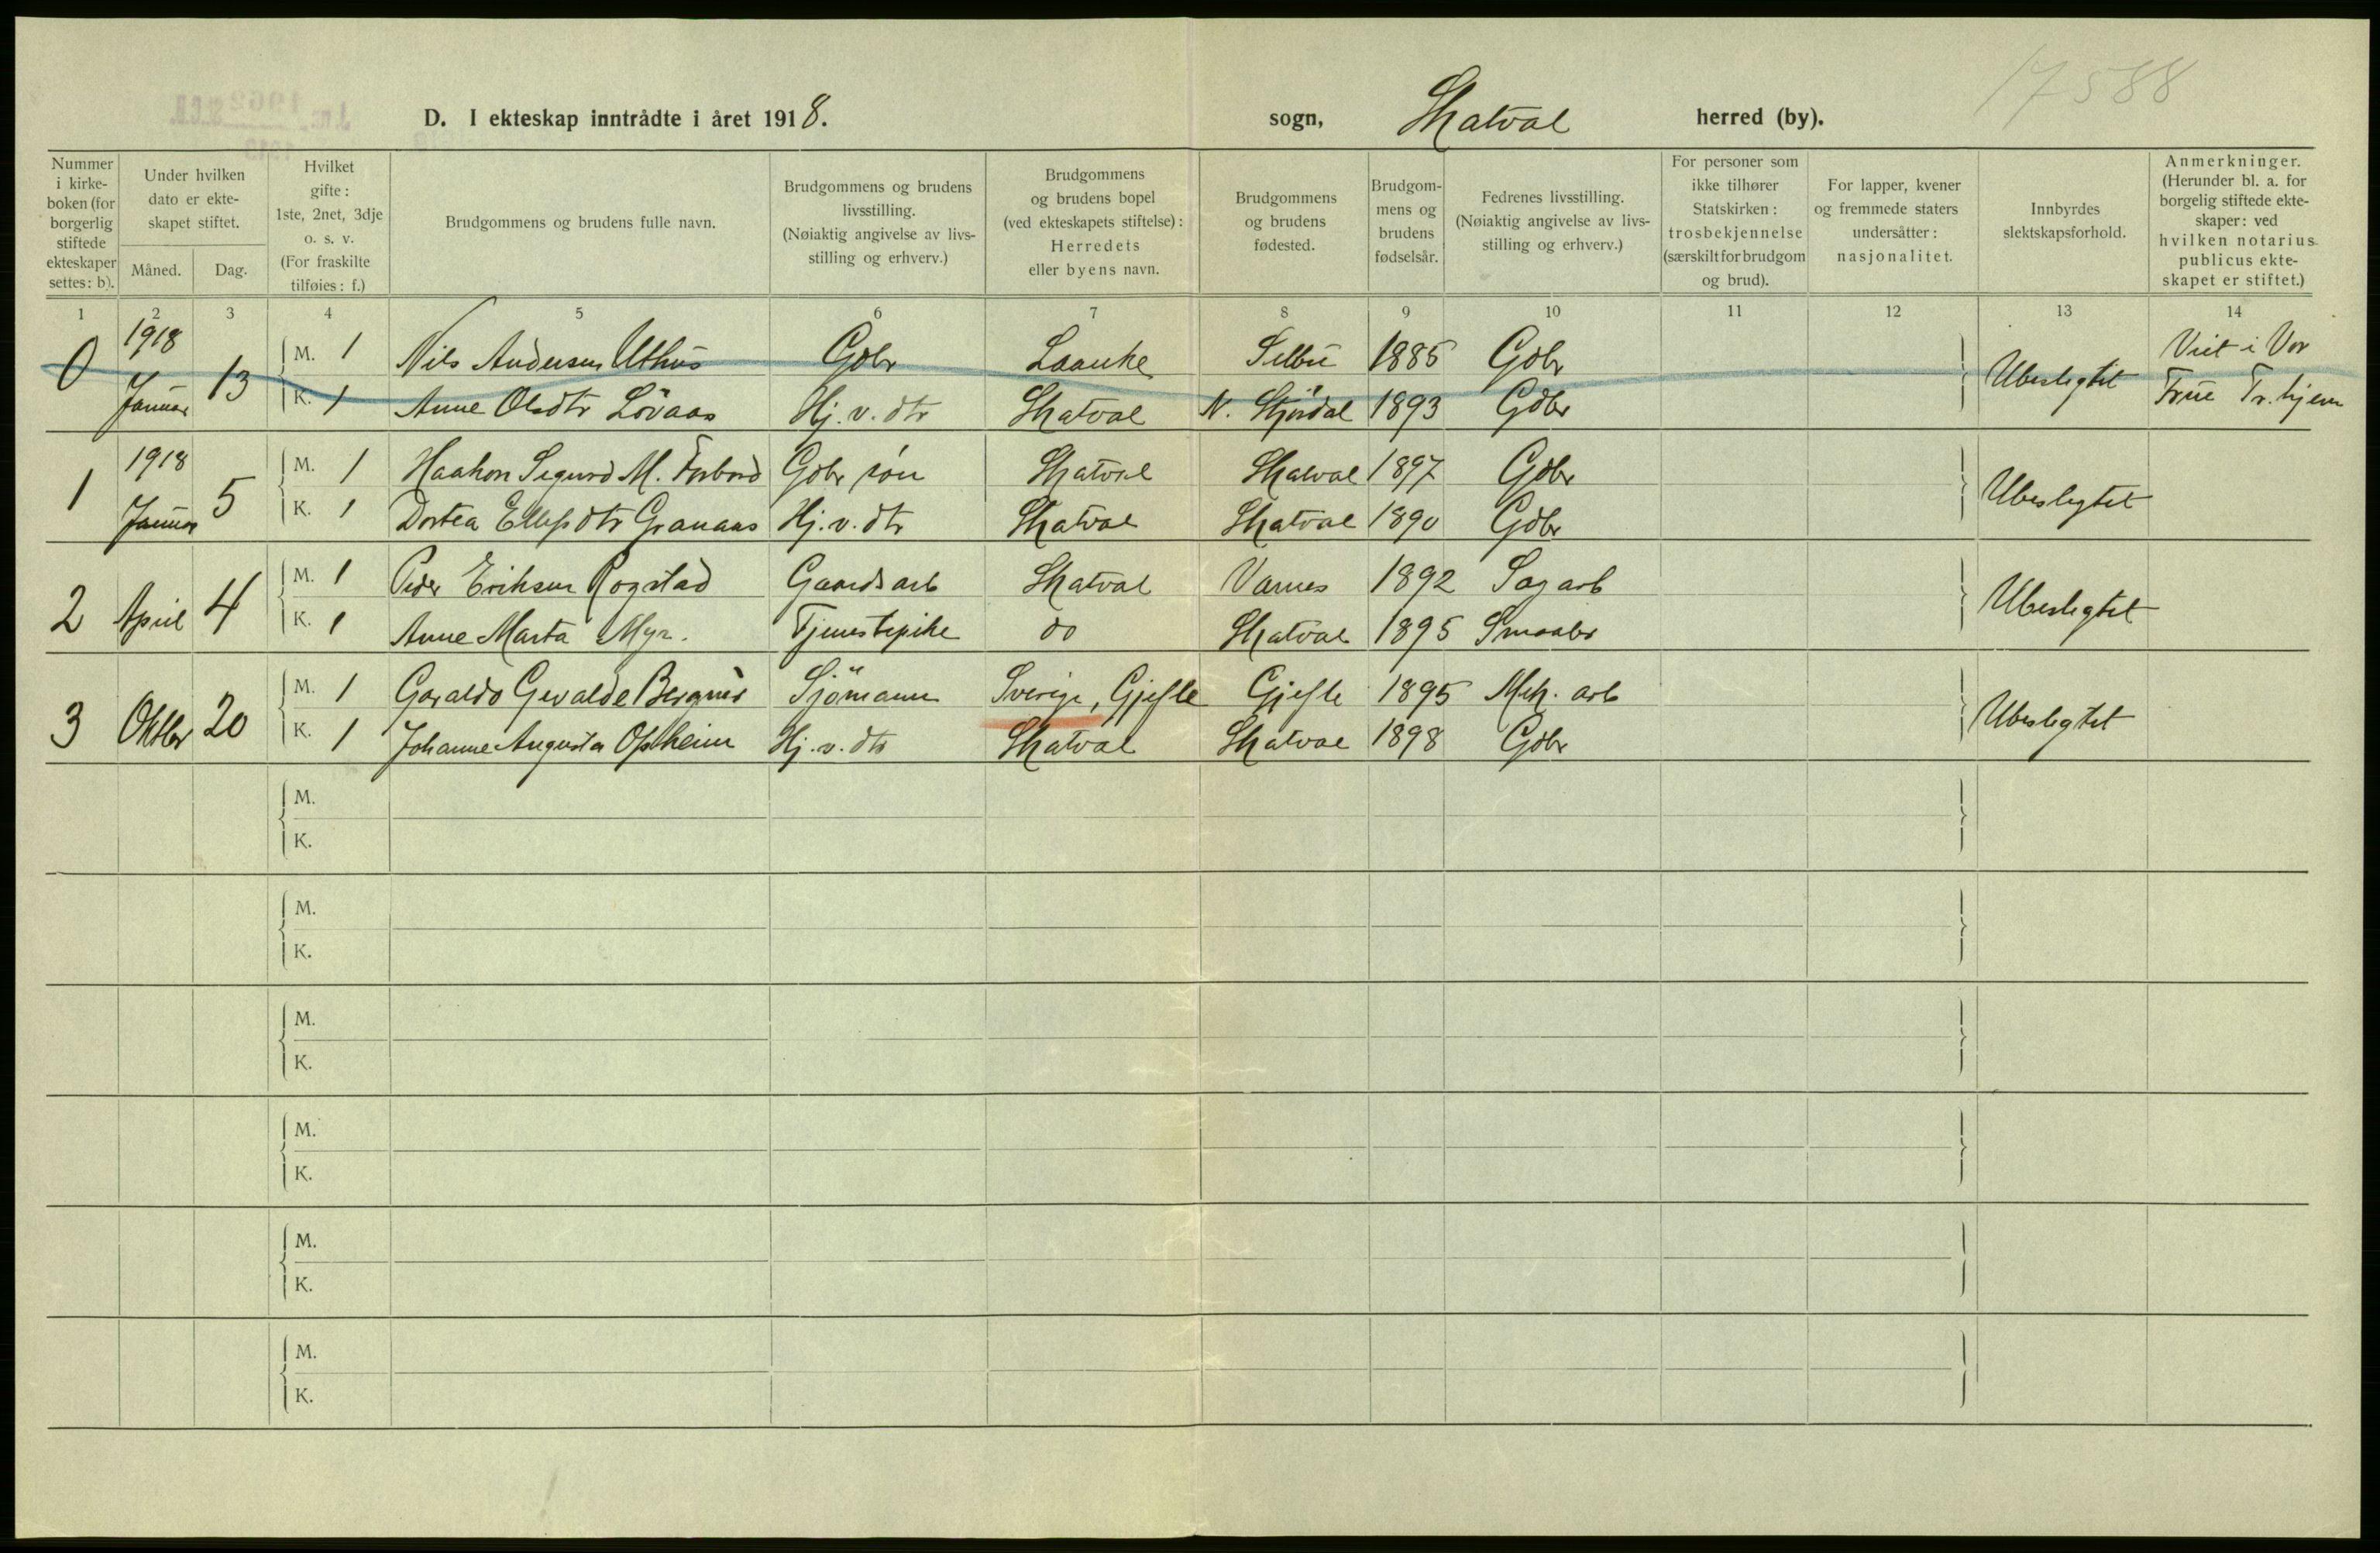 17588
D. I ekteskap inntrådte i året 1918.
sogn, Skatval herred (by).
Nummer i kirke- boken (for borgerlig stiftede ekteskaper settes: b).
Under hvilken dato er ekte- skapet stiftet.
Måned. Dag.
Hvilket gifte: 1ste, 2net, 3dje o. s. v. (For fraskilte tilføies: f.)
Brudgommens og brudens fulle navn.
Brudgommens og brudens livsstilling. (Nøiaktig angivelse av livs- stilling og erhverv.)
Brudgommens og brudens bopel (ved ekteskapets stiftelse): Herredets eller byens navn.
Brudgommens og brudens fødested.
Brudgom- mens og brudens fødselsår.
Fedrenes livsstilling. (Nøiaktig angivelse av livs- stilling og erhverv.)
For personer som ikke tilhører Statskirken: trosbekjennelse (særskilt for brudgom og brud).
For lapper, kvener og fremmede staters undersåtter: nasjonalitet.
Innbyrdes slektskapsforhold.
Anmerkninger. (Herunder bl. a. for borgelig stiftede ekte- skaper: ved hvilken notarius publicus ekte- skapet er stiftet.)
1 2 3 4 5 6 7 8 9 10 11 12 13 14
0 1918 Januar 13 M. 1 Nils Andersen Uthus Gdbr Laanke Selbu 1885 Gdbr Ubeslegtet Viet i Vor
K. 1 Anne Olsdtr Lövaas Hj. v. dtr Skatval N. Stjørdal 1893 Gdbr Frue Tr.hjem
1 1918 Januar 5 M. 1 Haakon Sigurd M. Forbord Gdbr søn Skatval Skatval 1897 Gdbr Ubeslegtet
K. 1 Dortea Ellefsdtr Granaas Hj. v. dtr Skatval Skatval 1890 Gdbr
2 April 4 M. 1 Peder Eriksen Rogstad Gaardsarb Skatval Værnes 1892 Sagarb Ubeslegtet
K. 1 Anne Marta Myr. Tjenestepike do Skatval 1895 Smaabr
3 Oktbr 20 M. 1 Gevalde Sjömann Sverige, Gjefle Gjefle 1895 Mek. arb Ubeslegtet
K. 1 Johanne Augusta Opheim Hj. v. dtr Skatval Skatval 1898 Gdbr
M.
K.
M.
K.
M.
K.
M.
K.
M.
K.
M.
K.